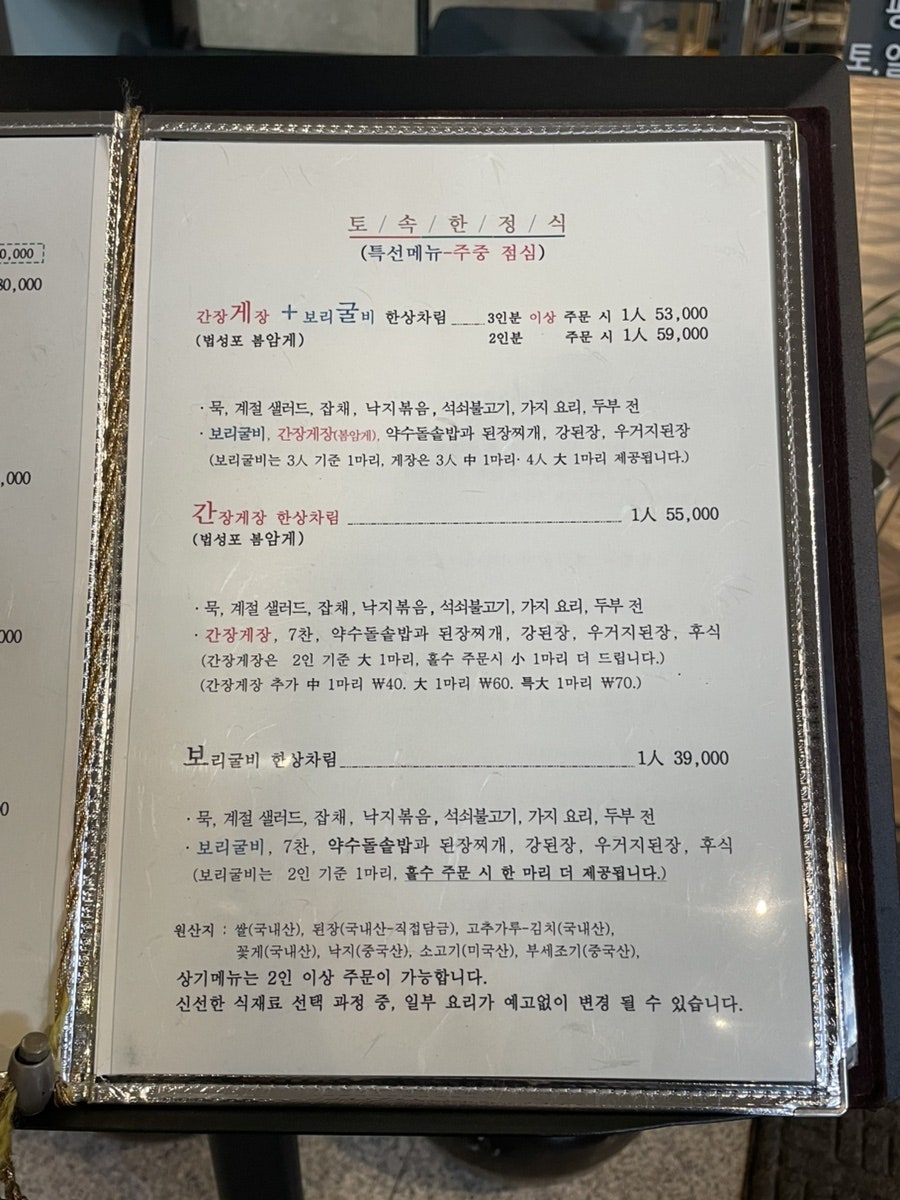 0,000
80,000
,000
000
0
토.일
토 / 속 / 한 / 정 / 식
(특선메뉴-주중 점심)
간장게장 + 보리굴비 한상차림 3인분 이상 주문 시 1人 53,000
(법성포 봄암게) 2인분 주문 시 1人 59,000
· 묵, 계절 샐러드, 잡채, 낙지볶음, 석쇠불고기, 가지 요리, 두부 전
· 보리굴비, 간장게장(봄암게), 약수돌솥밥과 된장찌개, 강된장, 우거지된장
(보리굴비는 3人 기준 1마리, 게장은 3人 中 1마리· 4人 大 1마리 제공됩니다.)
간장게장 한상차림 1人 55,000
(법성포 봄암게)
· 묵, 계절 샐러드, 잡채, 낙지볶음, 석쇠불고기, 가지 요리, 두부 전
· 간장게장, 7찬, 약수돌솥밥과 된장찌개, 강된장, 우거지된장, 후식
(간장게장은 2인 기준 大 1마리, 홀수 주문시 小 1마리 더 드립니다.)
(간장게장 추가 中 1마리 ₩40. 大 1마리 ₩60. 특大 1마리 ₩70.)
보리굴비 한상차림 1人 39,000
· 묵, 계절 샐러드, 잡채, 낙지볶음, 석쇠불고기, 가지 요리, 두부 전
· 보리굴비, 7찬, 약수돌솥밥과 된장찌개, 강된장, 우거지된장, 후식
(보리굴비는 2인 기준 1마리, 홀수 주문 시 한 마리 더 제공됩니다.)
원산지 : 쌀(국내산), 된장(국내산-직접담금), 고추가루-김치(국내산),
꽃게(국내산), 낙지(중국산), 소고기(미국산), 부세조기(중국산),
상기메뉴는 2인 이상 주문이 가능합니다.
신선한 식재료 선택 과정 중, 일부 요리가 예고없이 변경 될 수 있습니다.